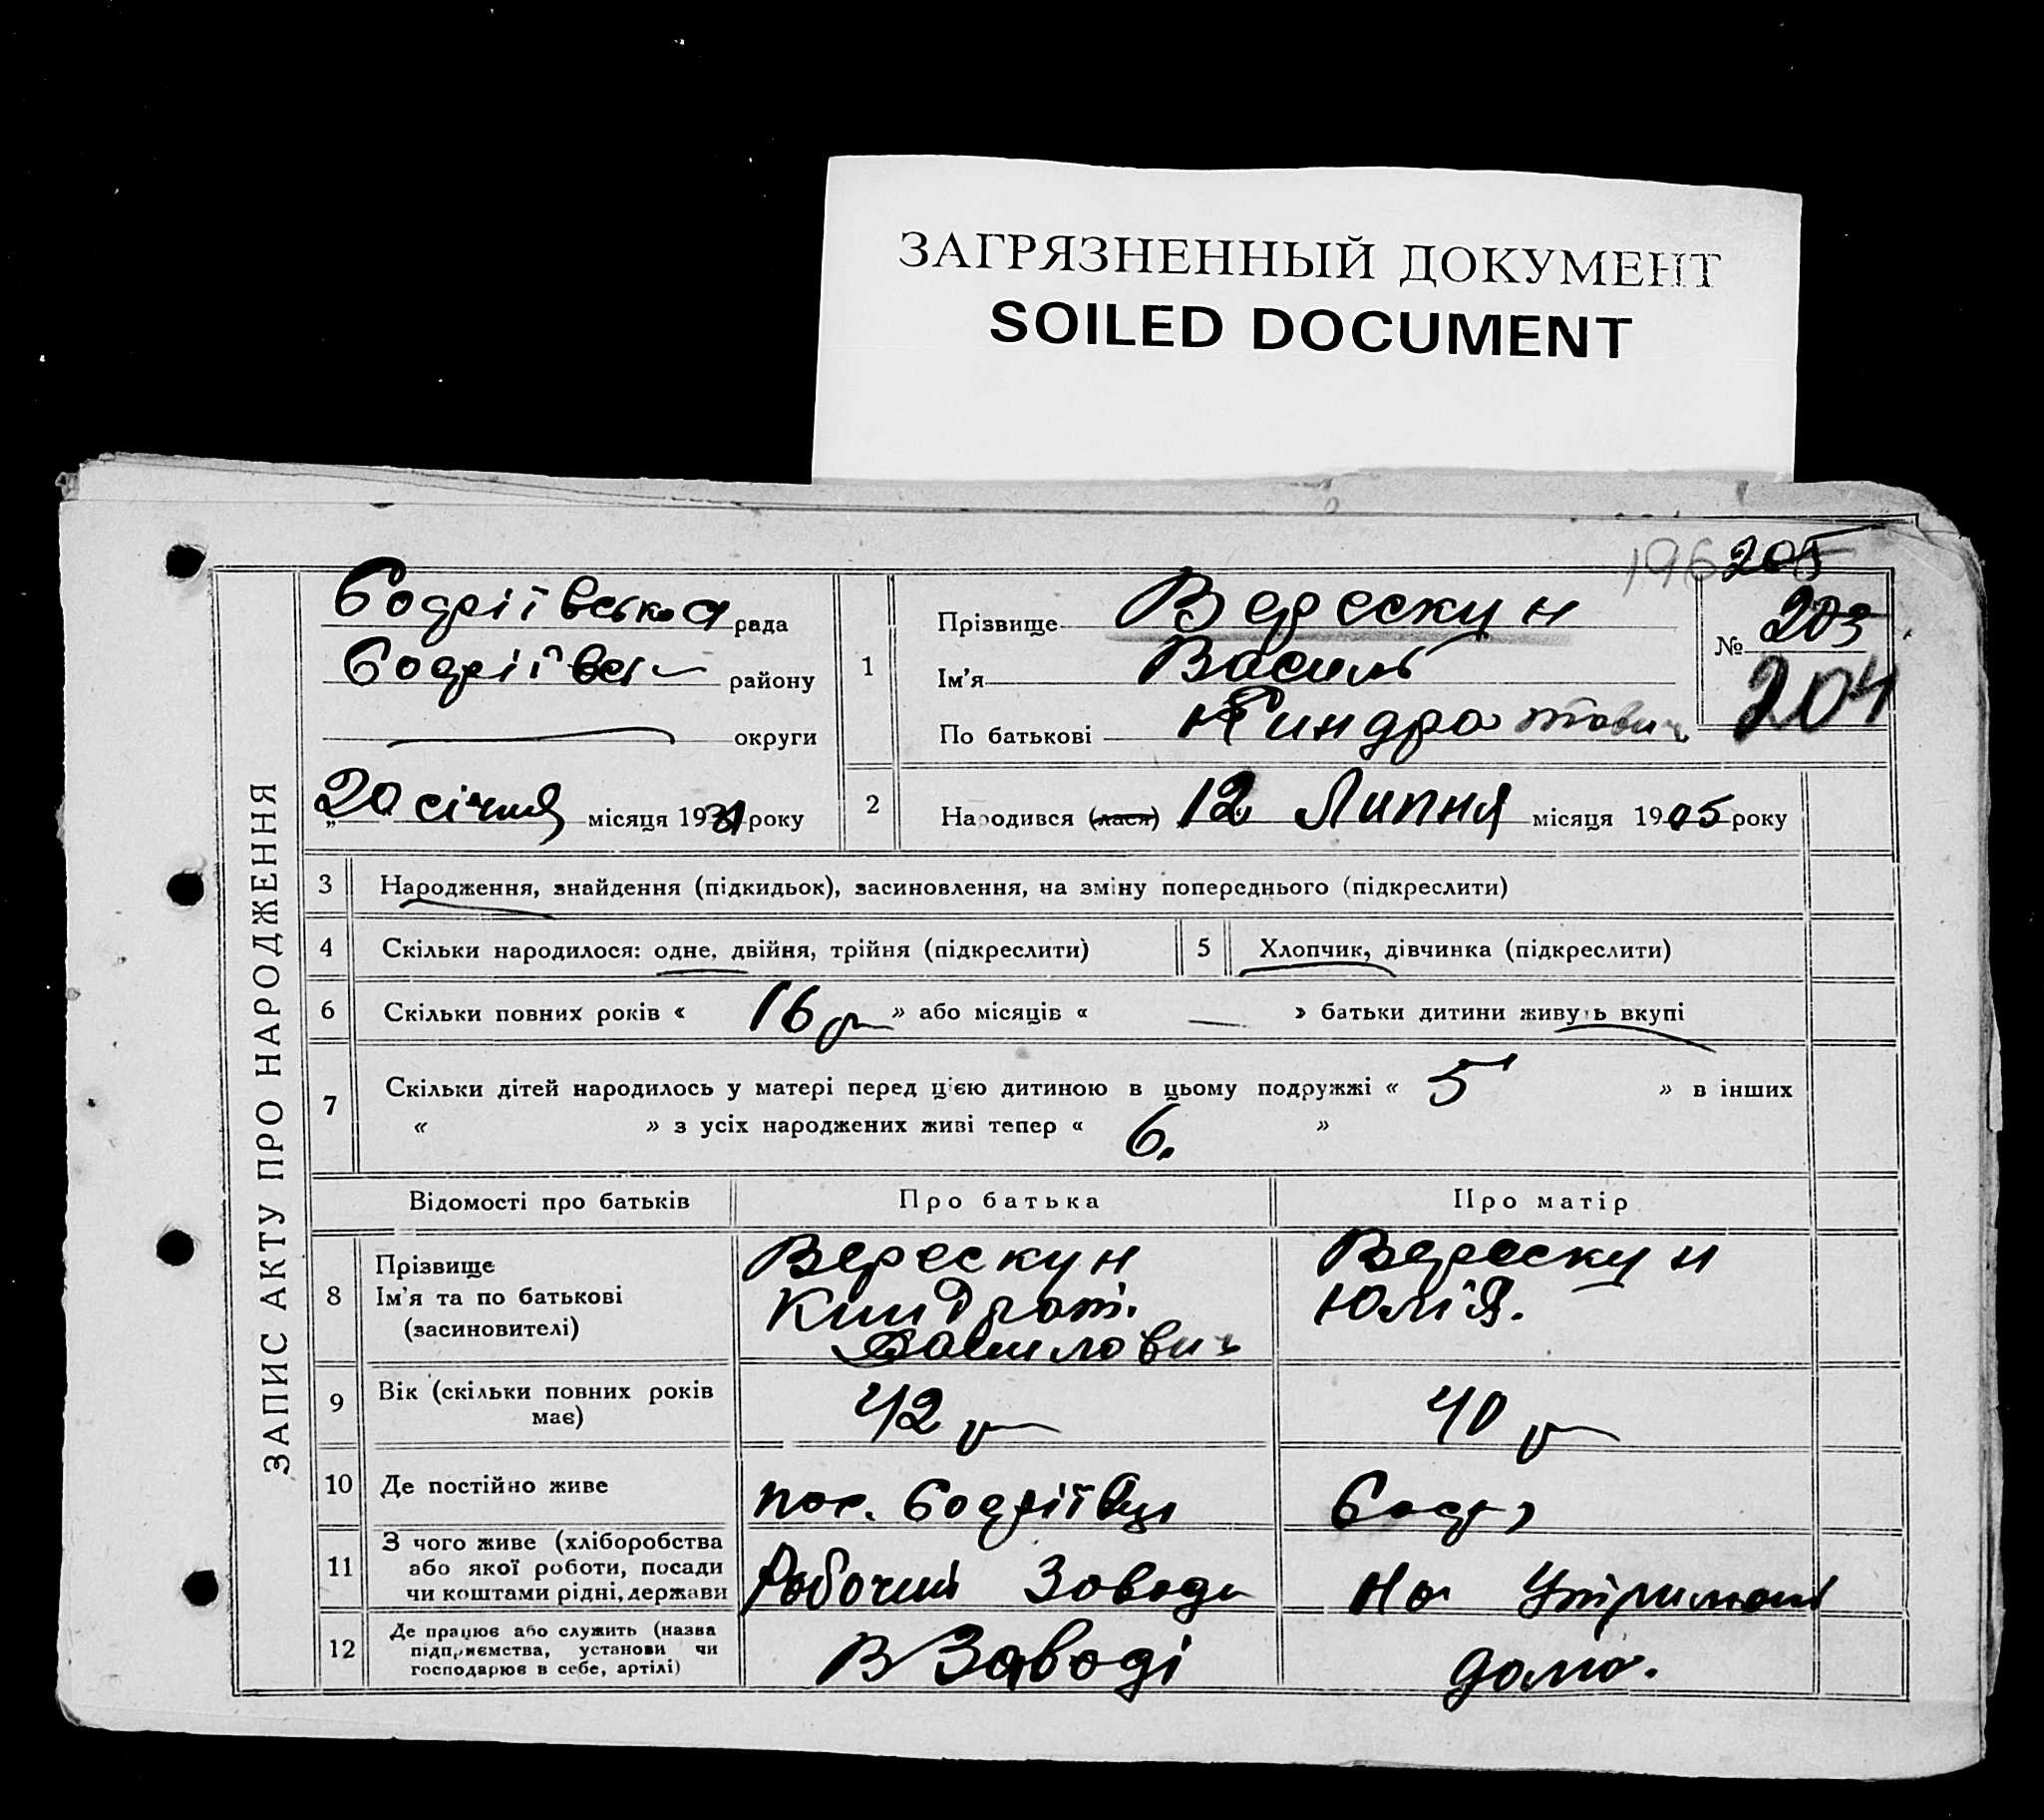 ЗАГРЯЗНЕННЫЙ ДОКУМЕНТ
SOILED DOCUMENT
196 205
ЗАПИС АКТУ ПРО НАРОДЖЕННЯ
рада
району
округи
20 січня місяця 19 року
1
Прізвище Верескун
Ім'я Василь
По батькові Киндратович
№ 203
204
2
Народився (лася) 12 Липня місяця 1905 року
3 Народження, знайдення (підкидьок), засиновлення, на зміну попереднього (підкреслити)
4 Скільки народилося: одне, двійня, трійня (підкреслити)
5 Хлопчик, дівчинка (підкреслити)
6 Скільки повних років « 16 » або місяців « — » батьки дитини живуть вкупі
7 Скільки дітей народилось у матері перед цією дитиною в цьому подружжі « 5 » в інших
« » з усіх народжених живі тепер « 6. »
Відомості про батьків Про батька Про матір
8 Прізвище
Ім'я та по батькові
(засиновителі)
Верескун
Киндрат.
Василович
Верескун
Юлія.
9 Вік (скільки повних років
має)
42
40
10 Де постійно живе
пос.
11 З чого живе (хліборобства
або якої роботи, посади
чи коштами рідні, держави
Робочий Заводу
На
12 Де працює або служить (назва
підприємства, установи чи
господарює в себе, артілі)
В Заводі
дома.